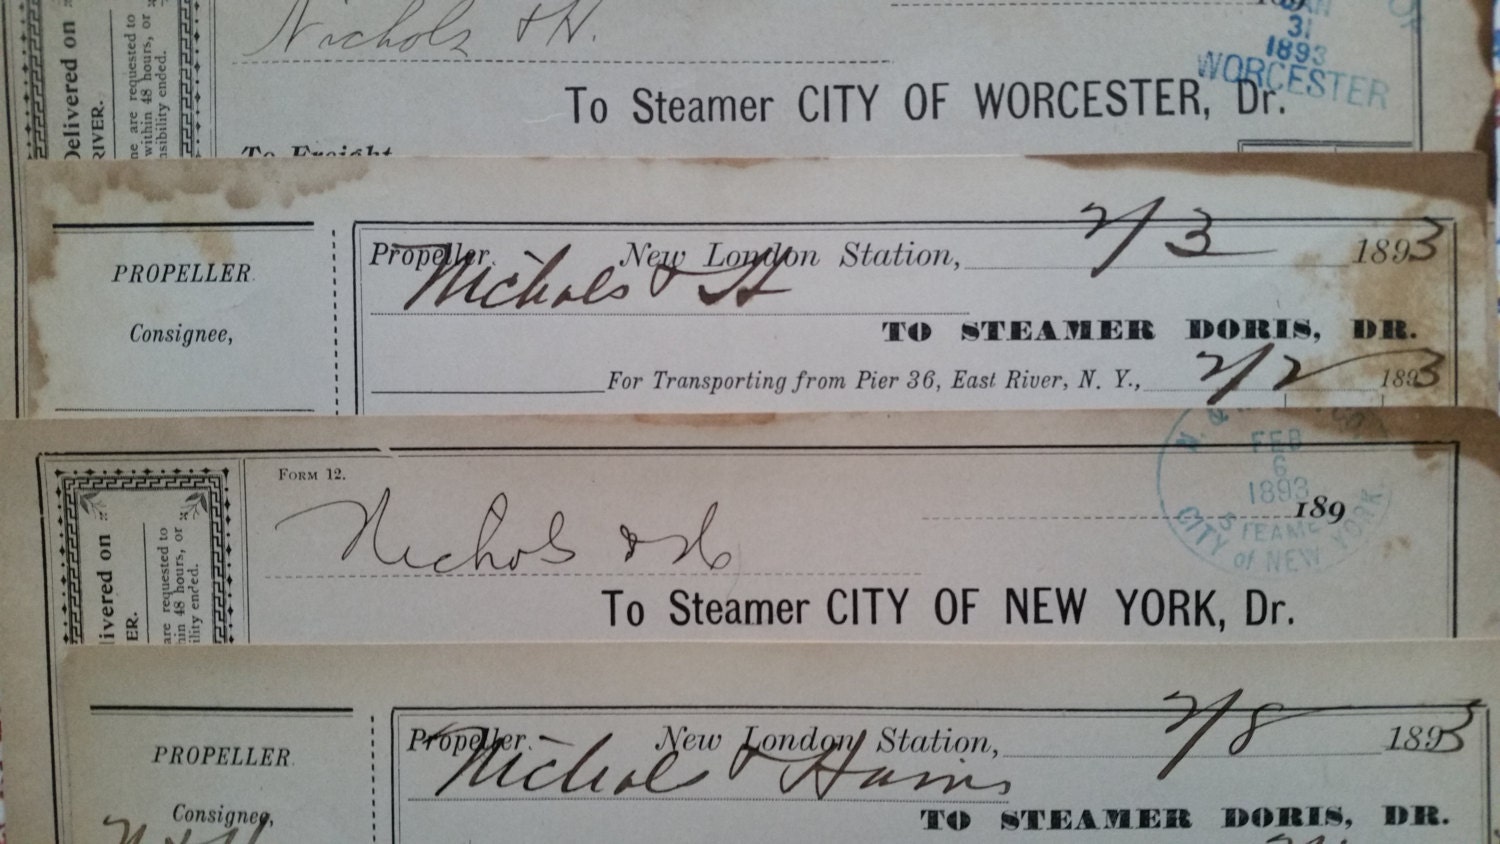 Nichols & H.
JAN
31
1893
WORCESTER
Delivered on
RIVER.
are requested to
within 48 hours, or
ended.
To Steamer CITY OF WORCESTER, Dr.
To Freight
PROPELLER
Consignee,
Propeller. New London Station, 2/3 1893
Nichols & H
TO STEAMER DORIS, DR.
For Transporting from Pier 36, East River, N. Y., 2/2 1893
FORM 12.
FEB
6
1893
STEAMER
CITY of NEW YORK
189
Nichols & H
livered on
ER.
are requested to
48 hours, or
ended.
To Steamer CITY OF NEW YORK, Dr.
PROPELLER
Consignee,
N & H
Propeller. New London Station, 2/8 1893
Nichols & Harris
TO STEAMER DORIS, DR.